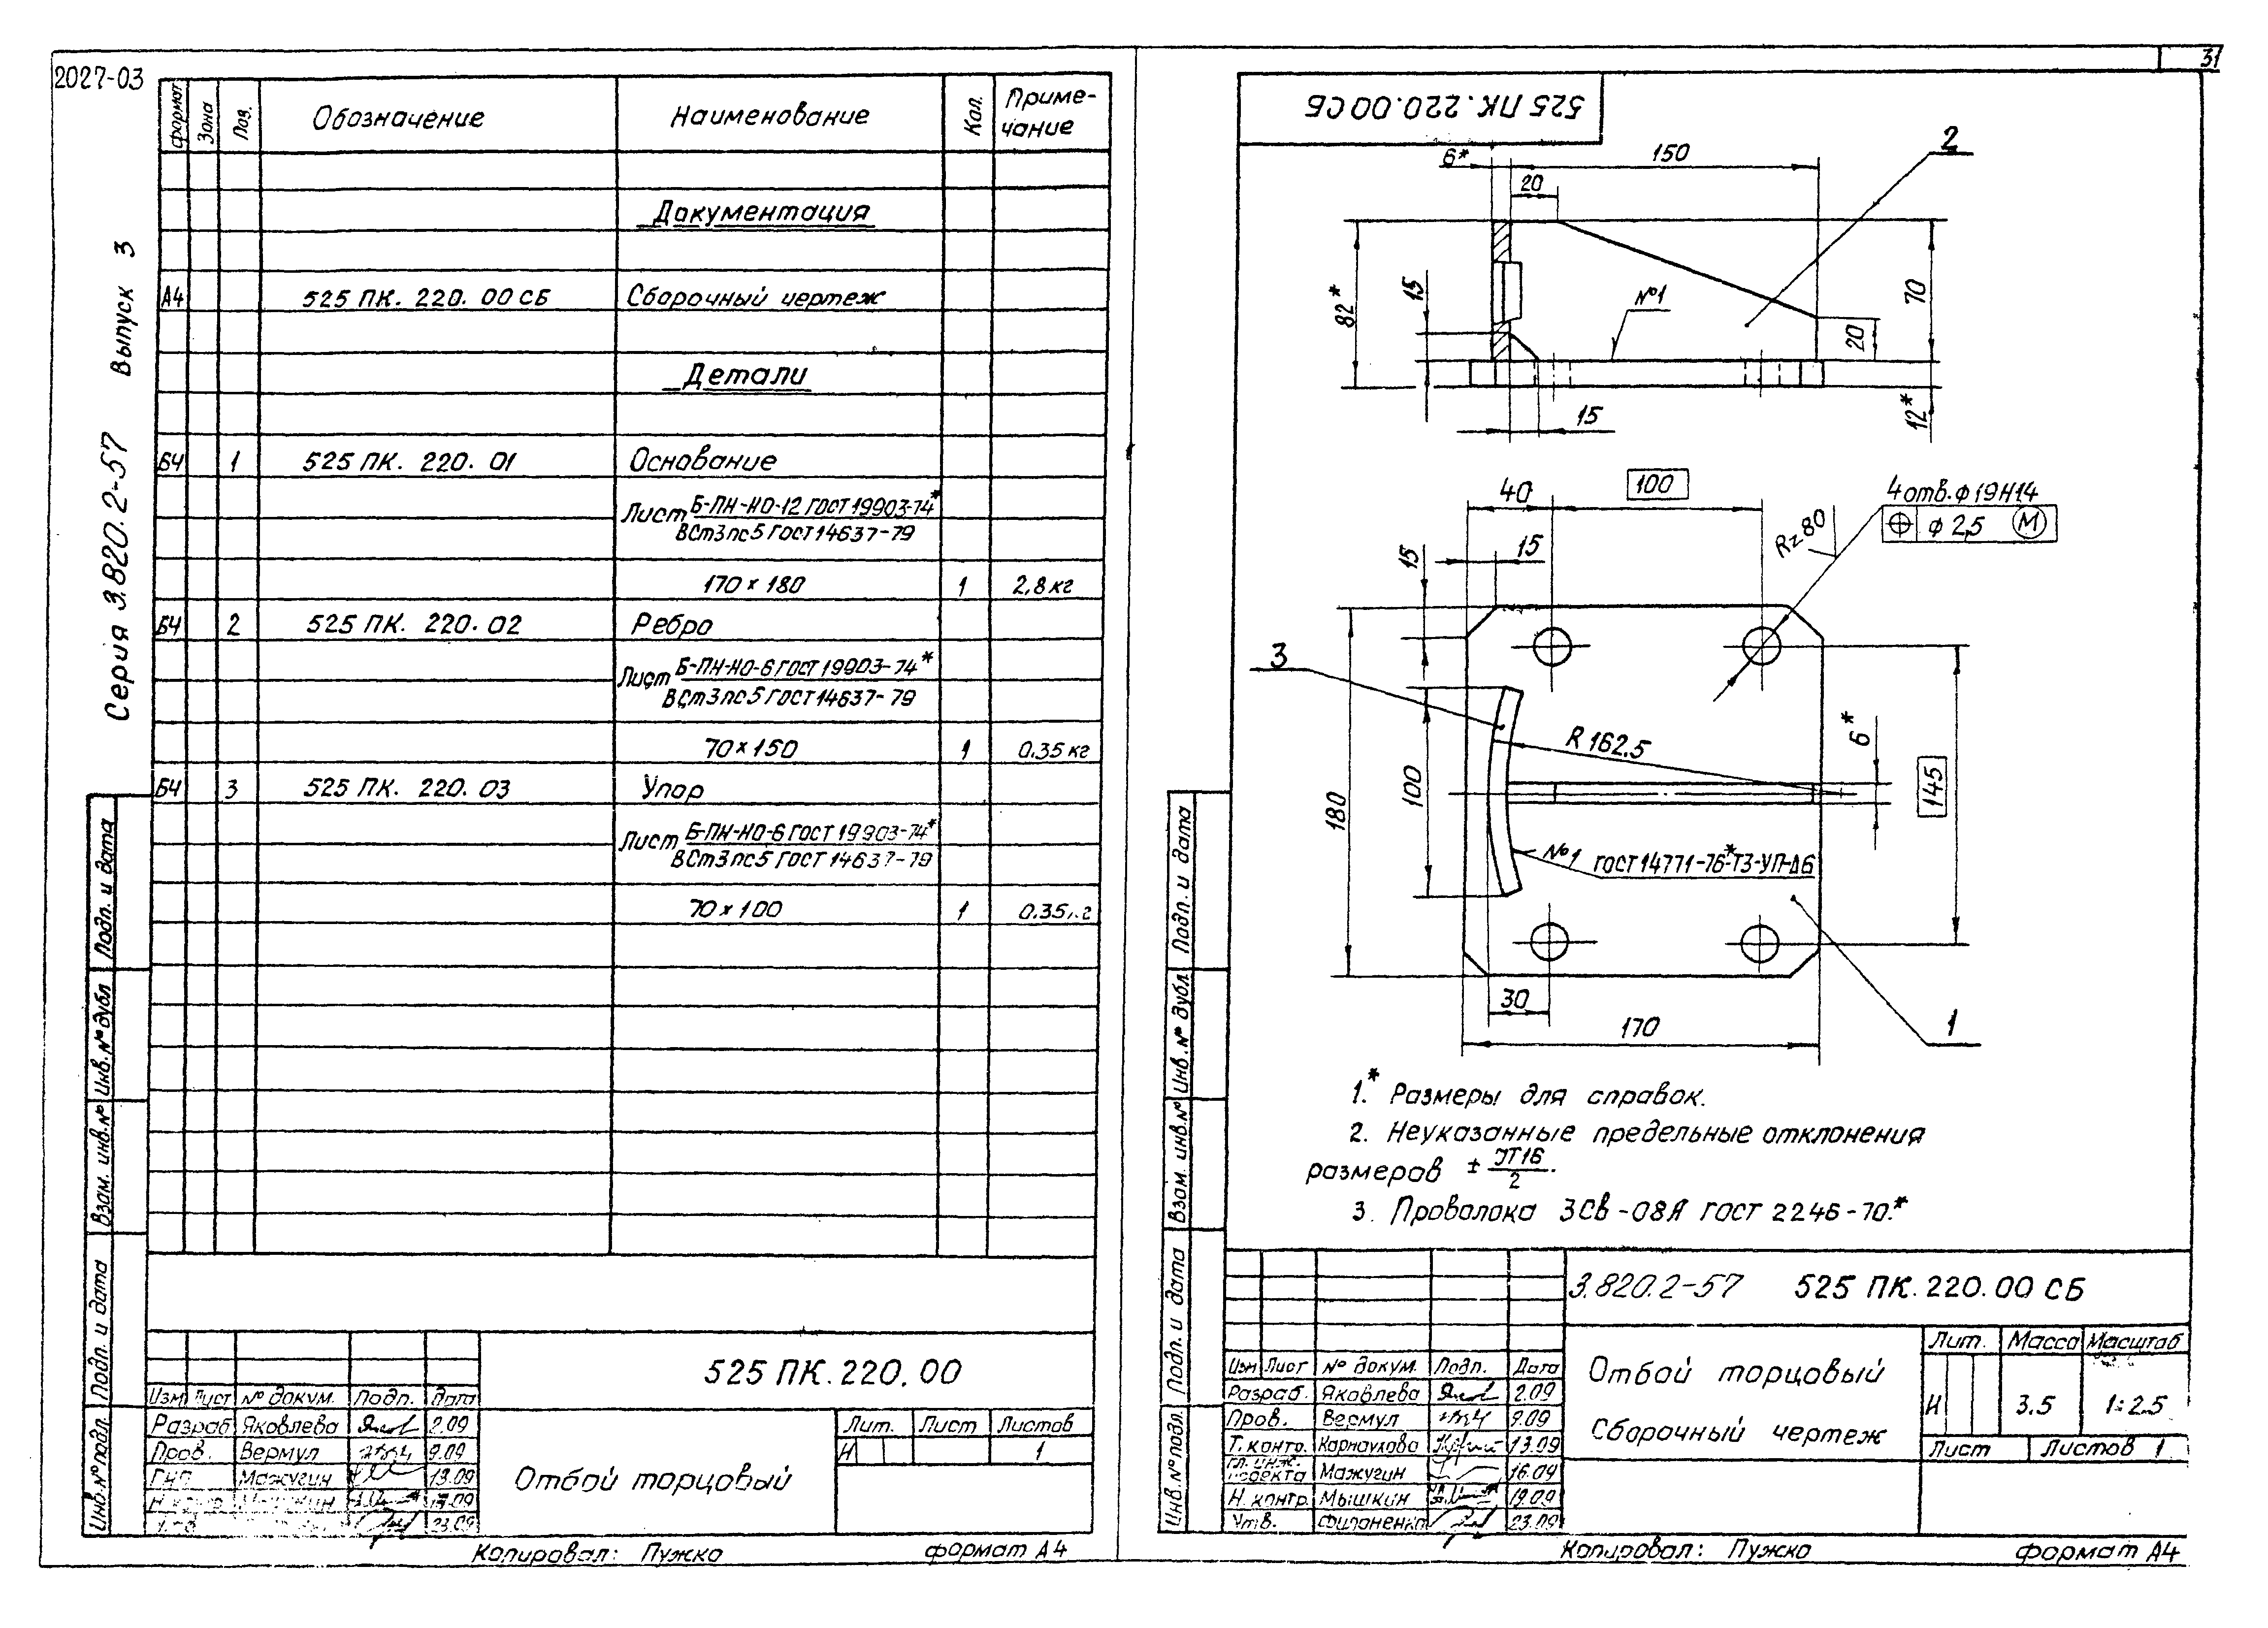 31
2027-03
Серия 3.820.2-57 Выпуск 3
формат Зона Поз. Обозначение Наименование Кол. Приме-
чание
Документация
А4 525 ПК. 220. 00 СБ Сборочный чертеж
Детали
БЧ 1 525 ПК. 220. 01 Основание
Лист Б-ПН-НО-12 ГОСТ 19903-74*
ВСт3пс5 ГОСТ 14637-79
170 × 180 1 2,8 кг
БЧ 2 525 ПК. 220. 02 Ребро
Лист Б-ПН-НО-6 ГОСТ 19903-74*
ВСт3пс5 ГОСТ 14637-79
70 × 150 1 0.35 кг
БЧ 3 525 ПК. 220. 03 Упор
Лист Б-ПН-НО-6 ГОСТ 19903-74*
ВСт3пс5 ГОСТ 14637-79
70 × 100 1 0.35 кг
Подп. и дата
Инв.№ дубл
Взам. инв.№
Подп. и дата
Инв.№ подл.
525 ПК. 220. 00
Изм Лист № докум. Подп. Дата
Разраб Яковлева 2.09
Пров. Вермул 9.09
ГИП Мажугин 13.09
Н.контр Мышкин 19.09
23.09
Отбой торцовый
Лит. Лист Листов
И 1
Копировал: Пужко формат А4
525 ПК. 220. 00 СБ
6* 150 2
20
82* 15 №1 20 70
15 12*
40 100 4 отв. ф 19Н14
⌖ ф 2,5 Ⓜ
15 15 Rz 80
3
R 162.5 6*
180 100 145
№1 ГОСТ 14771-76*-Т3-УП-Δ6
30
170 1
1.* Размеры для справок.
2. Неуказанные предельные отклонения
размеров ± JT16/2.
3. Проволока 3Св-08А ГОСТ 2246-70.*
Подп. и дата
Инв.№ дубл
Взам. инв.№
Подп. и дата
Инв.№ подл.
3.820.2-57 525 ПК. 220. 00 СБ
Изм Лист № докум. Подп. Дата
Разраб. Яковлева 2.09
Пров. Вермул 9.09
Т. контр. Карнаухова 13.09
Гл. инж.
проекта Мажугин 16.09
Н. контр. Мышкин 19.09
Утв. Филоненко 23.09
Отбой торцовый
Сборочный чертеж
Лит. Масса Масштаб
И 3.5 1:2.5
Лист Листов 1
Копировал: Пужко формат А4